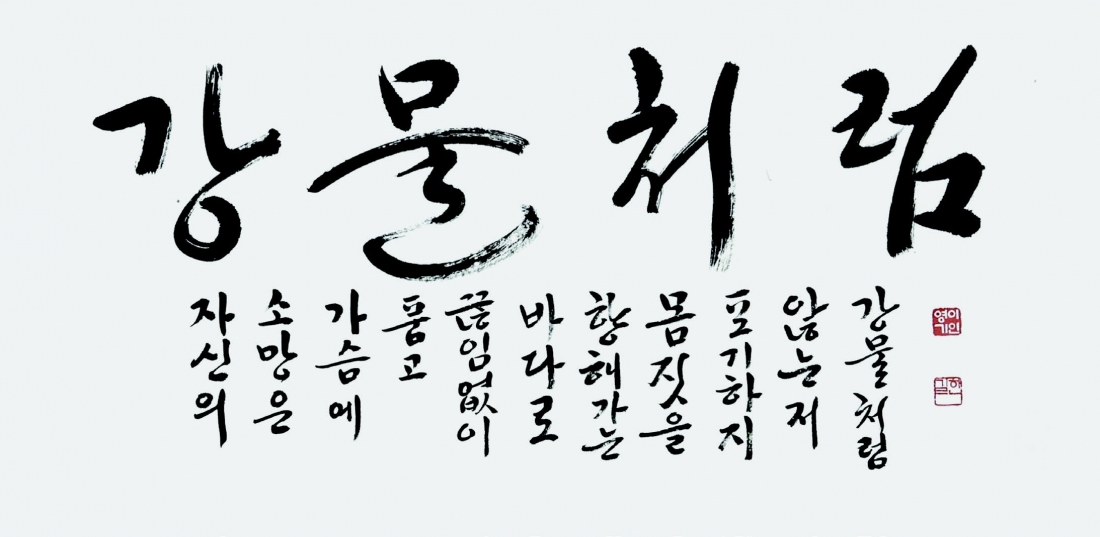 강물처럼
자신의
소망은
가슴에
품고
끊임없이
바다로
향해가는
몸짓을
포기하지
않는저
강물처럼
이영기인